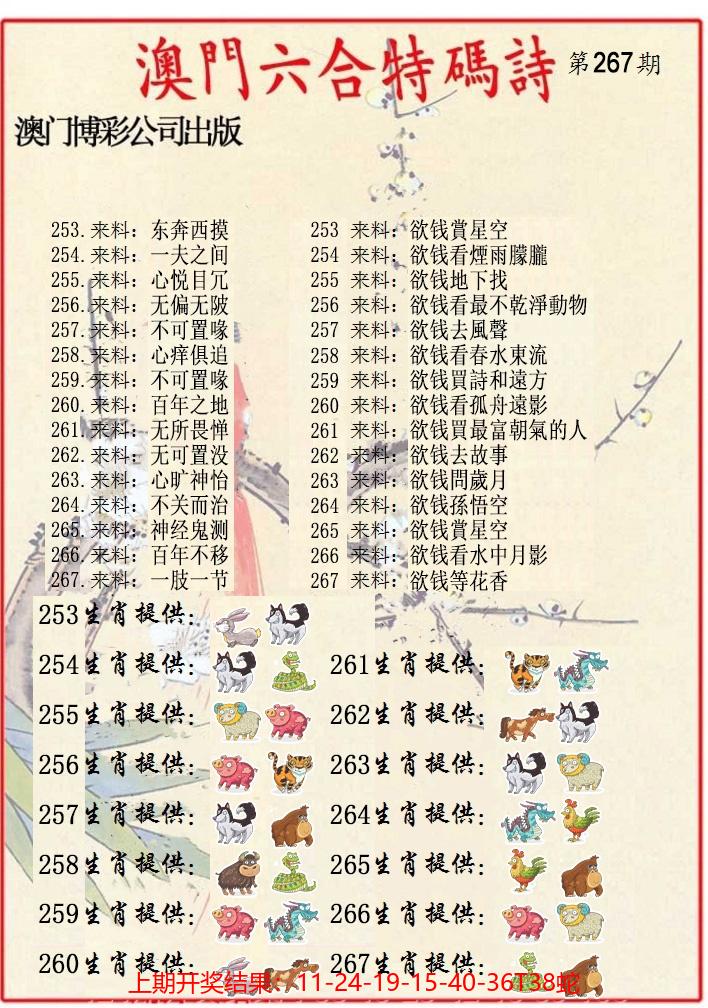 澳門六合特碼詩 第267期
澳门博彩公司出版
253.来料：东奔西摸
254.来料：一夫之间
255.来料：心悦目冗
256.来料：无偏无陂
257.来料：不可置喙
258.来料：心痒俱追
259.来料：不可置喙
260.来料：百年之地
261.来料：无所畏惮
262.来料：无可置没
263.来料：心旷神怡
264.来料：不关而治
265.来料：神经鬼测
266.来料：百年不移
267.来料：一肢一节
253 来料：欲钱賞星空
254 来料：欲钱看煙雨朦朧
255 来料：欲钱地下找
256 来料：欲钱看最不乾淨動物
257 来料：欲钱去風聲
258 来料：欲钱看春水東流
259 来料：欲钱買詩和遠方
260 来料：欲钱看孤舟遠影
261 来料：欲钱買最富朝氣的人
262 来料：欲钱去故事
263 来料：欲钱問歲月
264 来料：欲钱孫悟空
265 来料：欲钱賞星空
266 来料：欲钱看水中月影
267 来料：欲钱等花香
253生肖提供：
254生肖提供：
255生肖提供：
256生肖提供：
257生肖提供：
258生肖提供：
259生肖提供：
260生肖提供：
261生肖提供：
262生肖提供：
263生肖提供：
264生肖提供：
265生肖提供：
266生肖提供：
267生肖提供：
上期开奖结果：11-24-19-15-40-36T38蛇